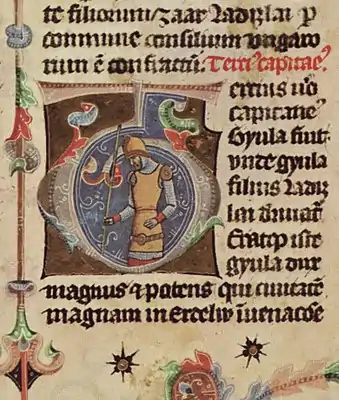 te filiorum zaar ladizlai p
commune consilium vngaro
rum ē confractū. Terci⁹ capitae⁹
Tercius u̾o
capitane⁹
Gyula fuit
vnde gyula
filius ladiz
lai diriuat̾
Erat iste
gyula dux
magnus ⁊ potens qui ciuitatē
magnam in erceliv ī uenacōe